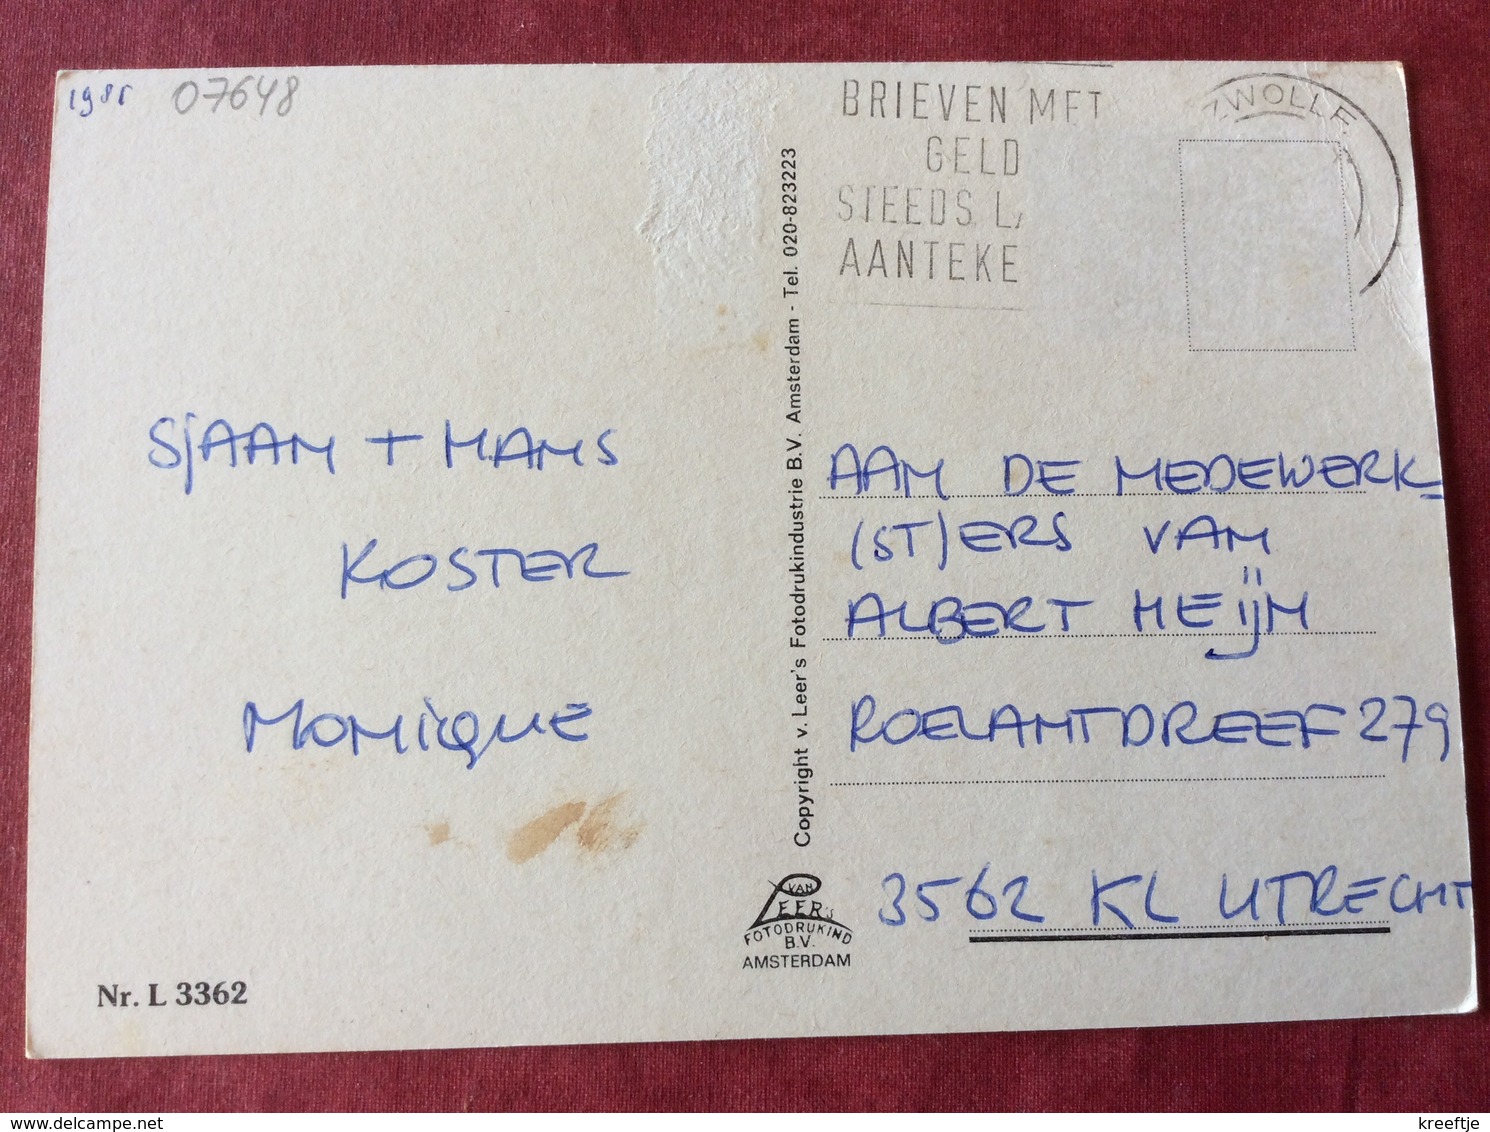 1981 07648
BRIEVEN MET
GELD
STEEDS L
AANTEKE
ZWOLLE
SJAAN + HANS
KOSTER
MONIQUE
Copyright v. Leer's Fotodrukindustrie B.V. Amsterdam - Tel. 020-823223
AAN DE MEDEWERK=
(ST)ERS VAN
ALBERT HEIJN
ROELANTDREEF 279
3562 KL UTRECHT
VAN
LEER's
FOTODRUKIND
B.V.
AMSTERDAM
Nr. L 3362
delcampe.net
kreeftje